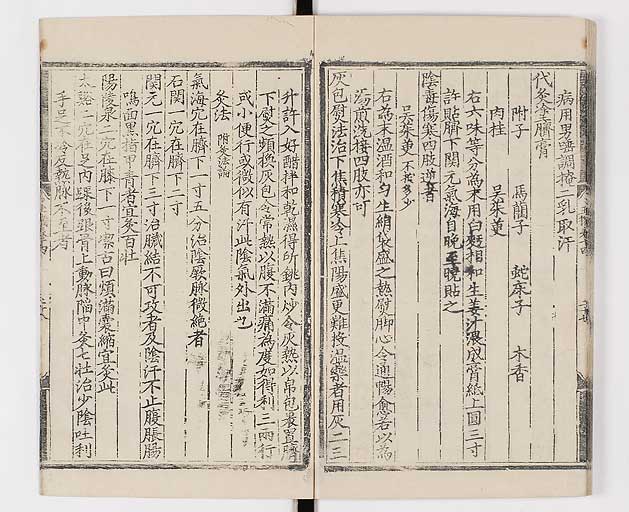 病用男唾調掩二乳取汗
代灸塗臍膏
附子 馬藺子 蛇床子 木香
肉桂 吳茱萸
右六味等分為末用白麪相和生姜汁濃成膏紙上圓三寸
許貼臍下関元氣海自晚至曉貼之
陰毒傷寒四肢逆者
吳茱萸不拘多少
右為末温酒和勻生絹袋盛之熱熨脚心令通陽愈若以為
湯煎洗接四肢亦可
灰包熨法治下焦積寒冷上焦陽盛更難投温藥者用灰二三
升許入好醋拌和乾濕得所銚內炒令灰熱以帛包裹置臍
下熨之頻換灰包令常熱以腹不滿痛為度如得利三兩行
或小便行或微似有汗此陰氣外出也
灸法 附灸論
氣海穴在臍下一寸五分治陰厥脉微絶者
石関一穴在臍下二寸
関元一穴在臍下三寸治臓結不可攻者及陰汗不止腹脹腸
鳴面黒指甲青者宜灸百壯
陽陵泉二穴在膝下一寸潔古曰煩滿囊縮宜灸此
太谿二穴在足內踝後跟骨上動脉陥中灸七壯治少陰吐利
手足不冷反熱脉不至者